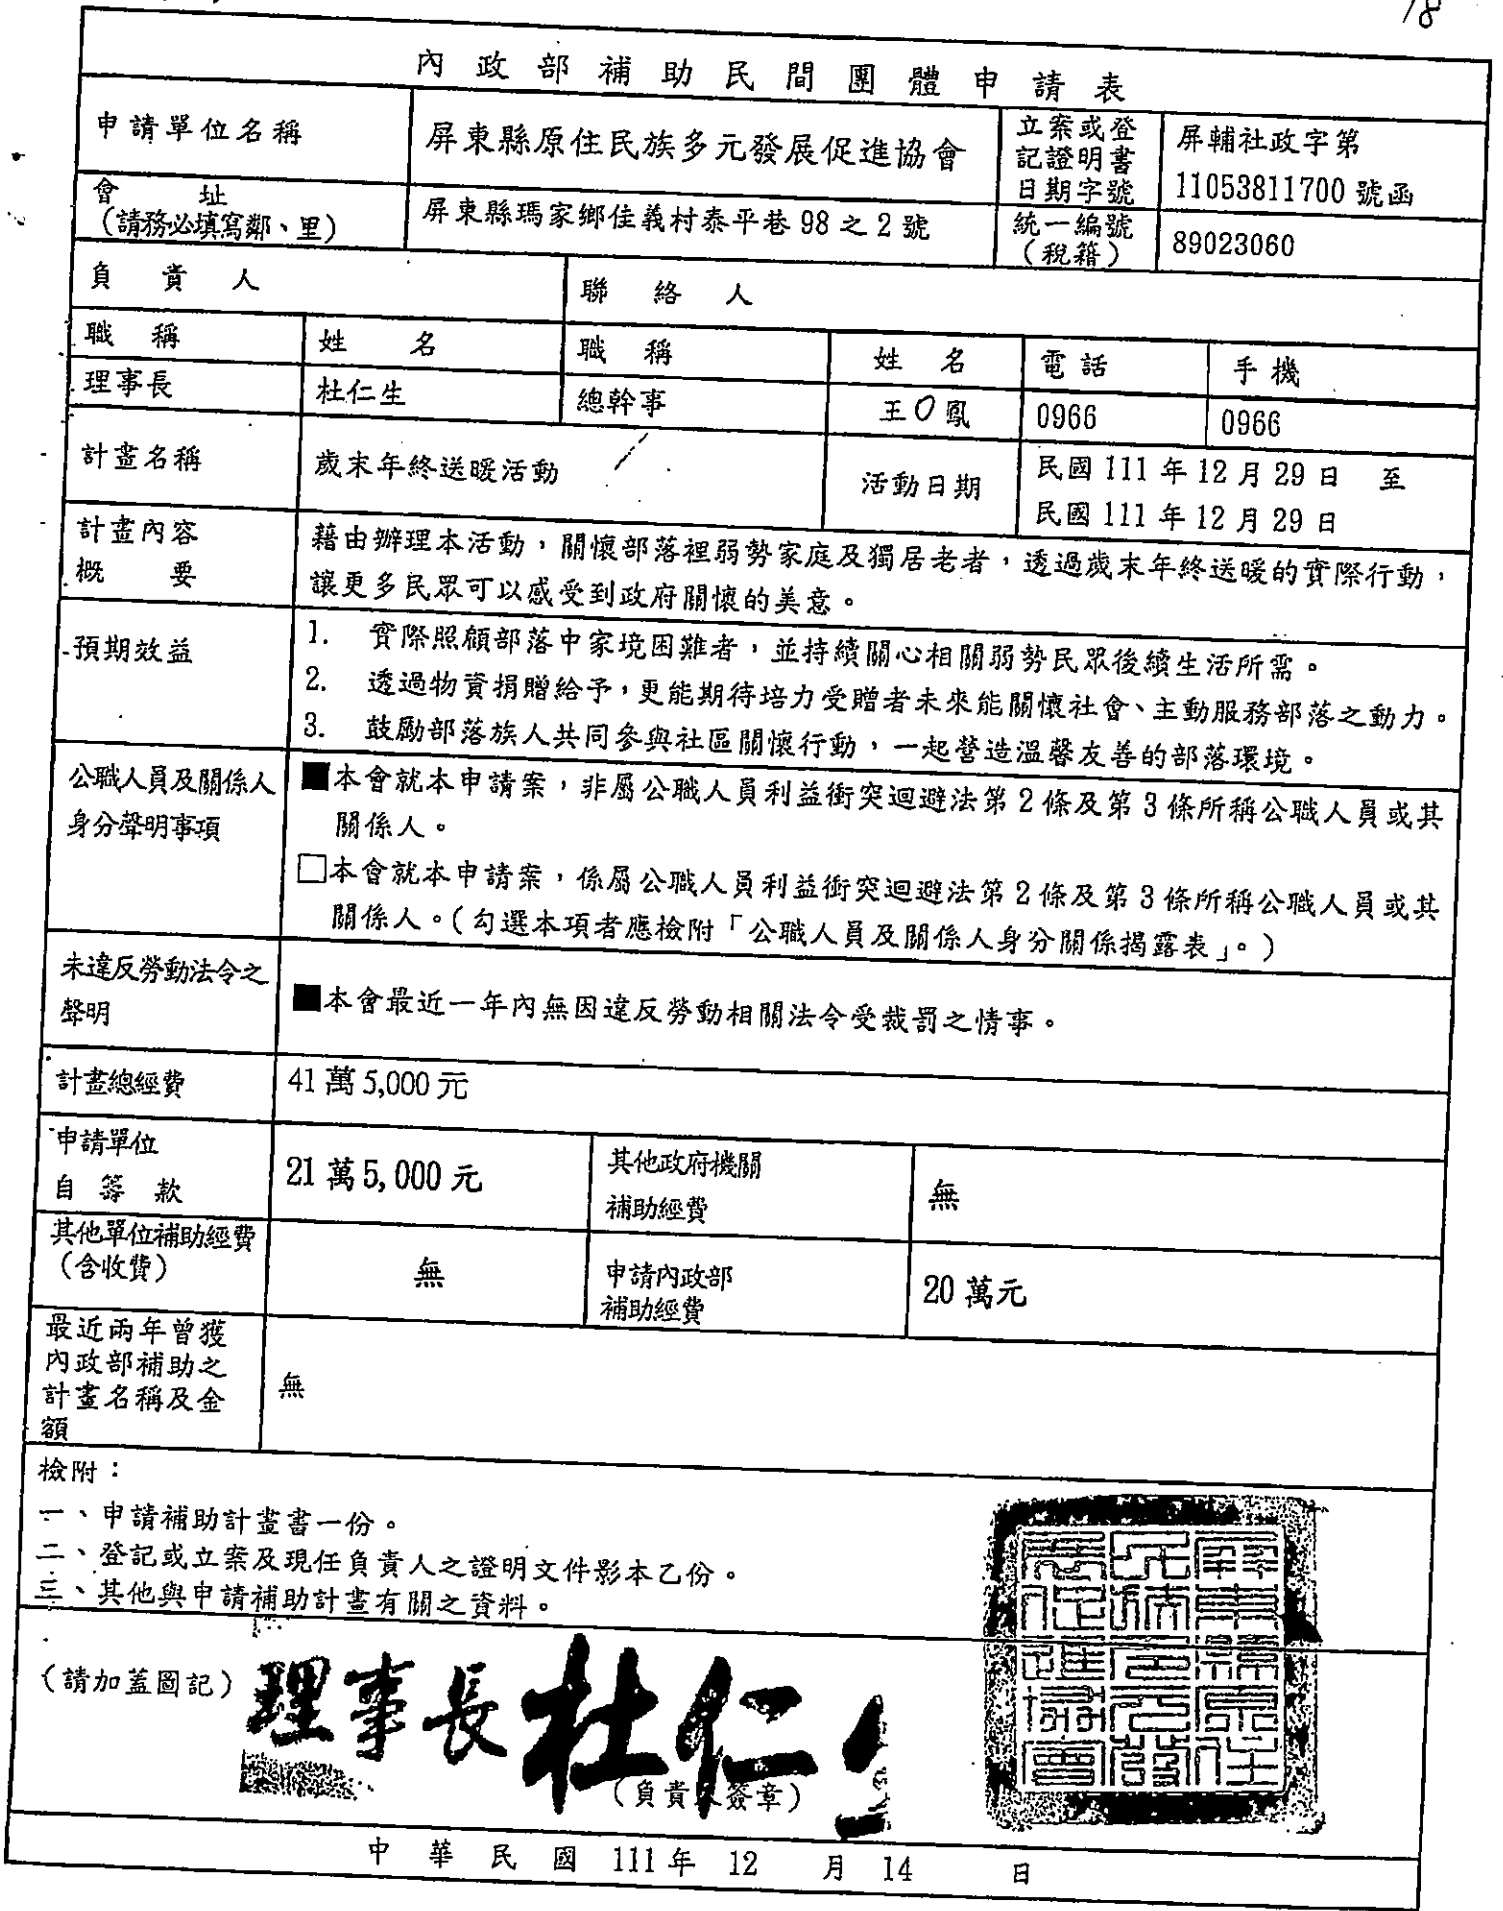 18
內政部補助民間團體申請表
申請單位名稱
屏東縣原住民族多元發展促進協會
立案或登
記證明書
日期字號
屏輔社政字第
11053811700 號函
會 址
(請務必填寫鄰、里)
屏東縣瑪家鄉佳義村泰平巷 98 之 2 號
統一編號
(稅籍)
89023060
負責人
聯絡人
職稱
姓名
職稱
姓名
電話
手機
理事長
杜仁生
總幹事
王O鳳
0966
0966
計畫名稱
歲末年終送暖活動
活動日期
民國 111 年 12 月 29 日 至
民國 111 年 12 月 29 日
計畫內容
概 要
藉由辦理本活動,關懷部落裡弱勢家庭及獨居老者,透過歲末年終送暖的實際行動,
讓更多民眾可以感受到政府關懷的美意。
預期效益
1. 實際照顧部落中家境困難者,並持續關心相關弱勢民眾後續生活所需。
2. 透過物資捐贈給予,更能期待培力受贈者未來能關懷社會、主動服務部落之動力。
3. 鼓勵部落族人共同參與社區關懷行動,一起營造溫馨友善的部落環境。
公職人員及關係人
身分聲明事項
■本會就本申請案,非屬公職人員利益衝突迴避法第 2 條及第 3 條所稱公職人員或其
關係人。
□本會就本申請案,係屬公職人員利益衝突迴避法第 2 條及第 3 條所稱公職人員或其
關係人。(勾選本項者應檢附「公職人員及關係人身分關係揭露表」。)
未違反勞動法令之
聲明
■本會最近一年內無因違反勞動相關法令受裁罰之情事。
計畫總經費
41 萬 5,000 元
申請單位
自籌款
21 萬 5,000 元
其他政府機關
補助經費
無
其他單位補助經費
(含收費)
無
申請內政部
補助經費
20 萬元
最近兩年曾獲
內政部補助之
計畫名稱及金
額
無
檢附:
一、申請補助計畫書一份。
二、登記或立案及現任負責人之證明文件影本乙份。
三、其他與申請補助計畫有關之資料。
(請加蓋圖記)
理事長杜仁生
(負責人簽章)
屏東縣原住民族多元發展促進協會
中華民國 111 年 12 月 14 日